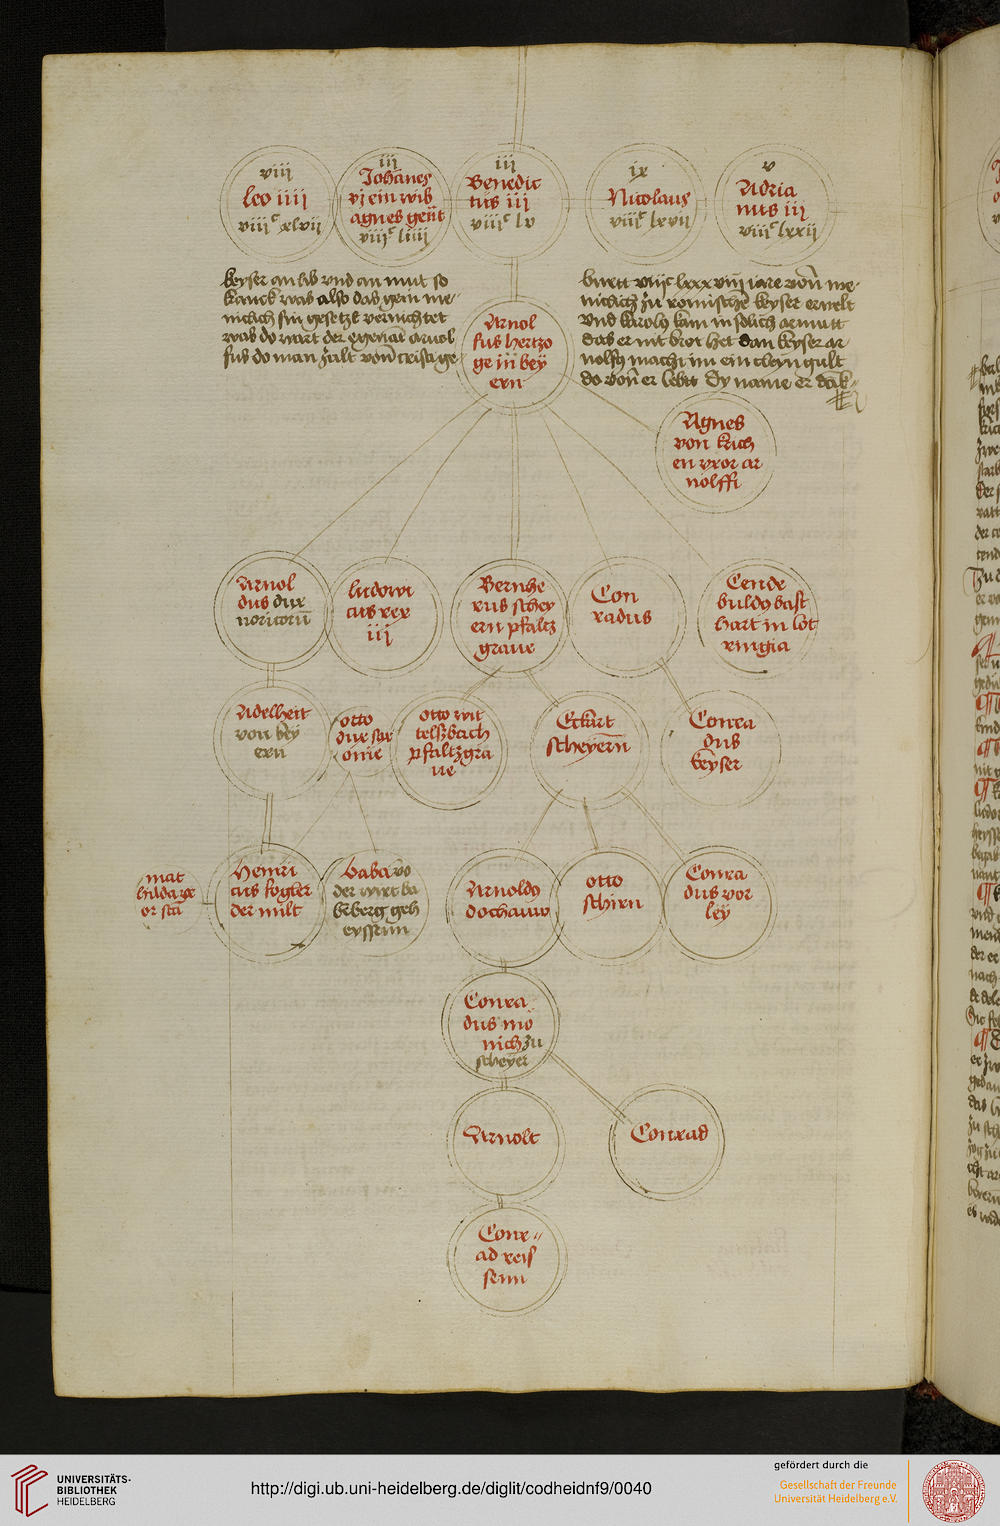 viij
leo iiij
viijᶜ xlvij
iij
Johānes
vj ein wib
agnes geñt
viijᶜ liiij
iij
Benedic
tus iij
viijᶜ lv
ix
Nicolaus
viijᶜ lxvij
v
Adria
nus iij
viijᶜ lxxij
keyser an lib vnd an mut so
kranck was also das yem me
nicklich sin gesetzt vernichtet
was do wart der egenāt arnol
fus do man zalt von cristi ge
burtt viijᶜ lxxxviij iare von me
niclich zu romischē keyser erwelt
vnd karolꝰ kam in solich armutt
das er nit brot het dan keyser ar
nolfꝰ macht im ein cleyn gult
do von er lebtt Dy name er dāk
Arnol
fus hertzo
ge in bey
ern
Agnes
von krich
en vxor ar
nolffi
Arnol
dus dux
noricorū
ludowi
cus rex
iij
Bernhe
rus schey
ern pfaltz
graue
Con
radus
Cende
buldꝰ bast
hart in lot
ringia
Adelheit
von bey
ern
otto
dux sax
onie
otto wit
telszbach
pfaltzgra
ue
Eckart
scheyern
Conra
dus
keyser
mat
hilda xe
or scā
Heinri
cus kogler
der milt
baba vō
der wirt ba
bēberg geh
eyssenn
Arnoldꝰ
dochauw
otto
schirn
Conra
dus vor
ley
Conra
dus mō
nich zu
scheyer
Arnolt
Conrad
Conr
ad reis
senn
UNIVERSITÄTS-
BIBLIOTHEK
HEIDELBERG
http://digi.ub.uni-heidelberg.de/diglit/codheidnf9/0040
gefördert durch die
Gesellschaft der Freunde
Universität Heidelberg e.V.